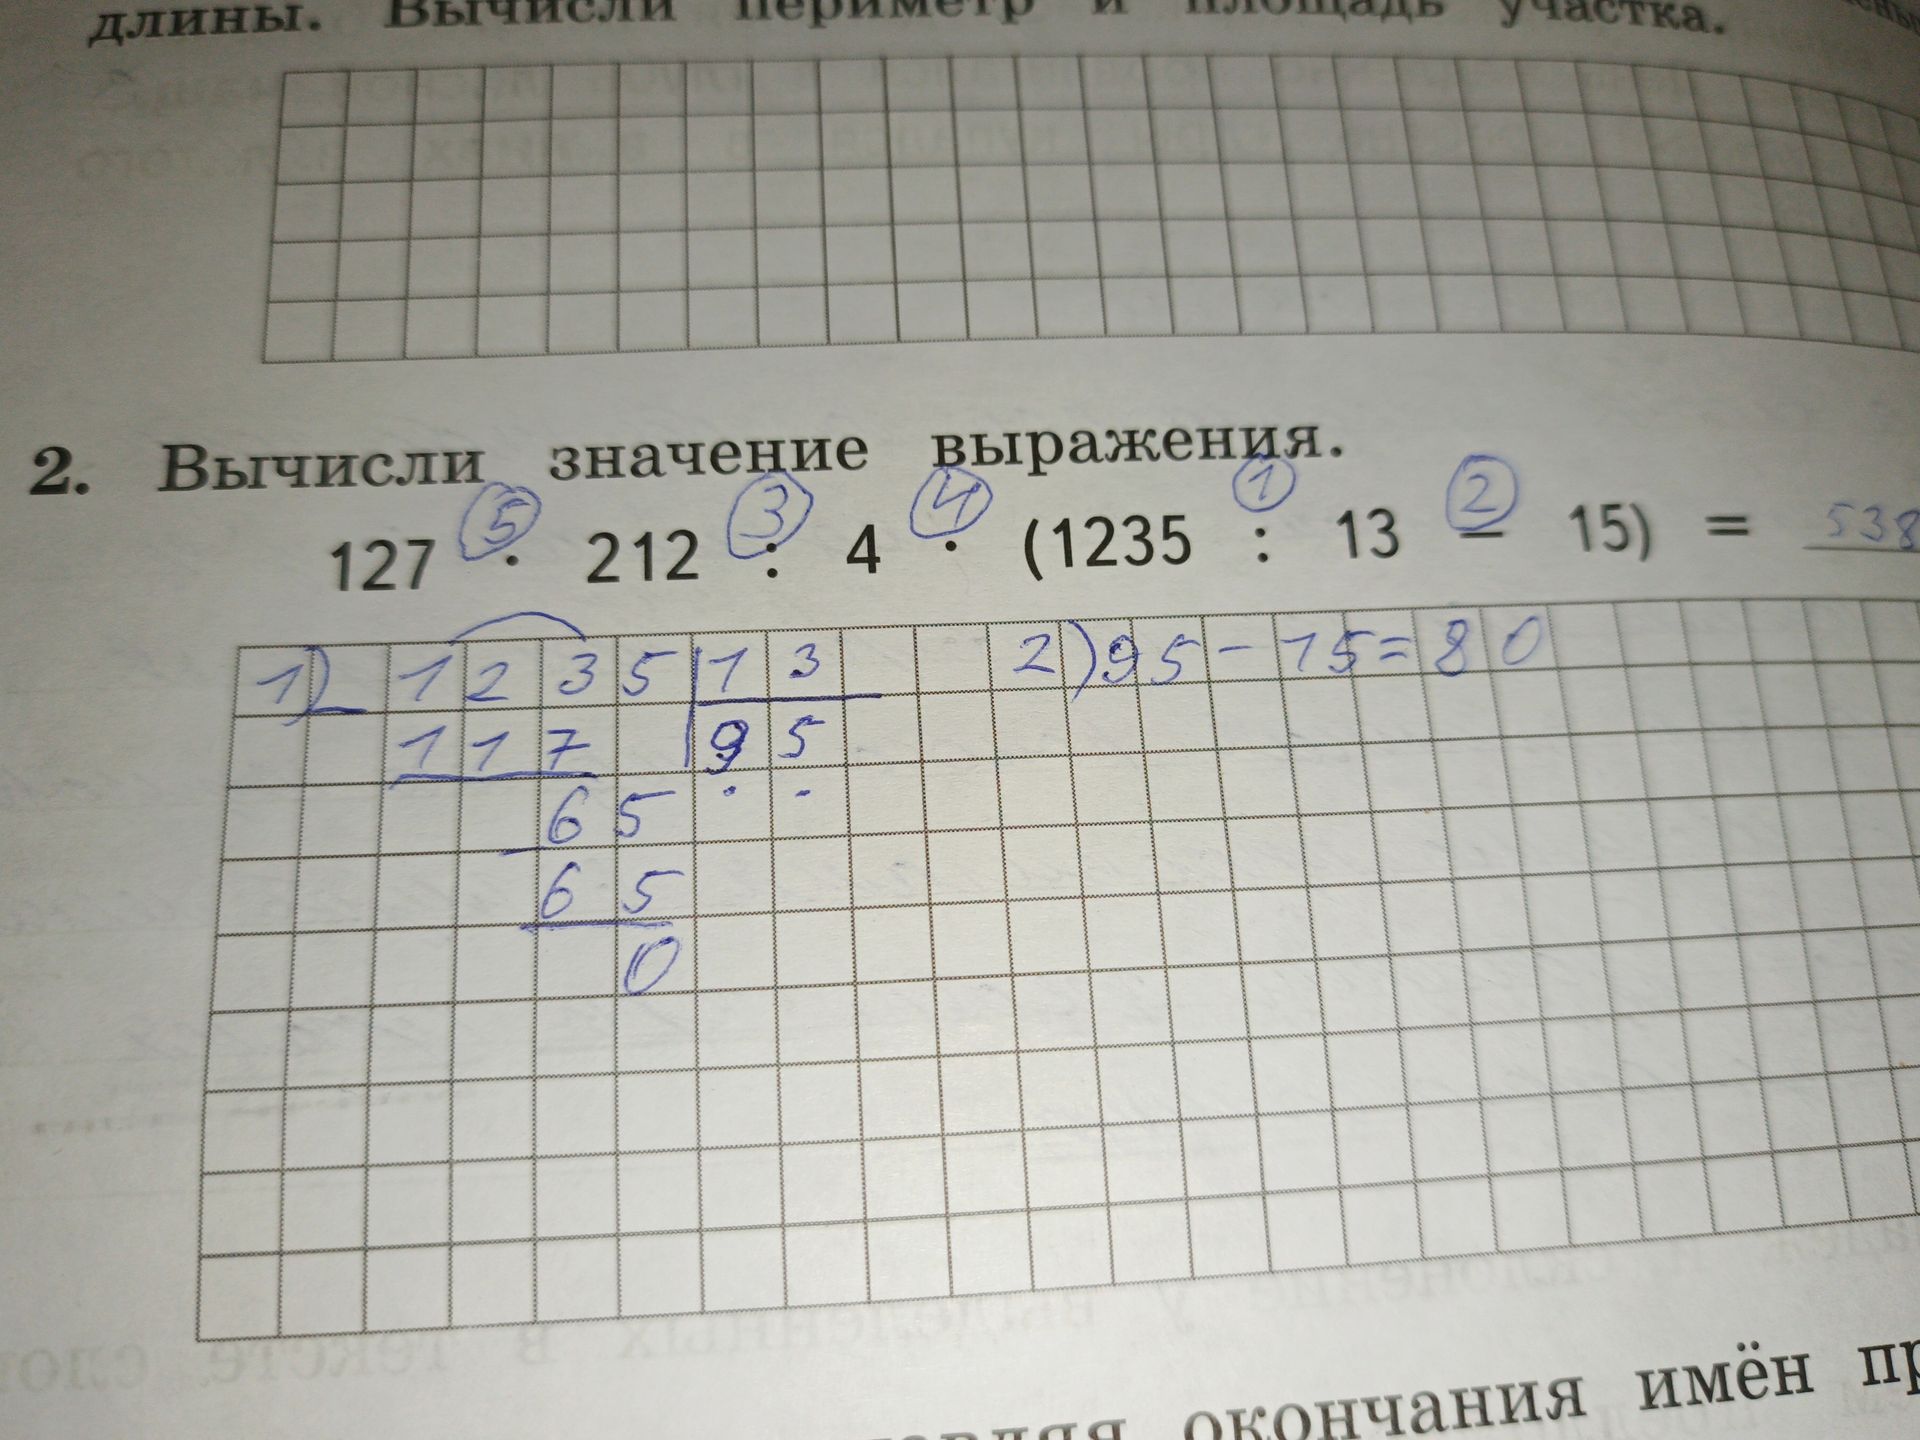 длины. Вычисли периметр и площадь участка.
2. Вычисли значение выражения.
5 3 4 1 2
127 · 212 : 4 · (1235 : 13 − 15) = 538
1) 1235 13 2) 95 - 15 = 80
117 95
65
65
0
окончания имён пр